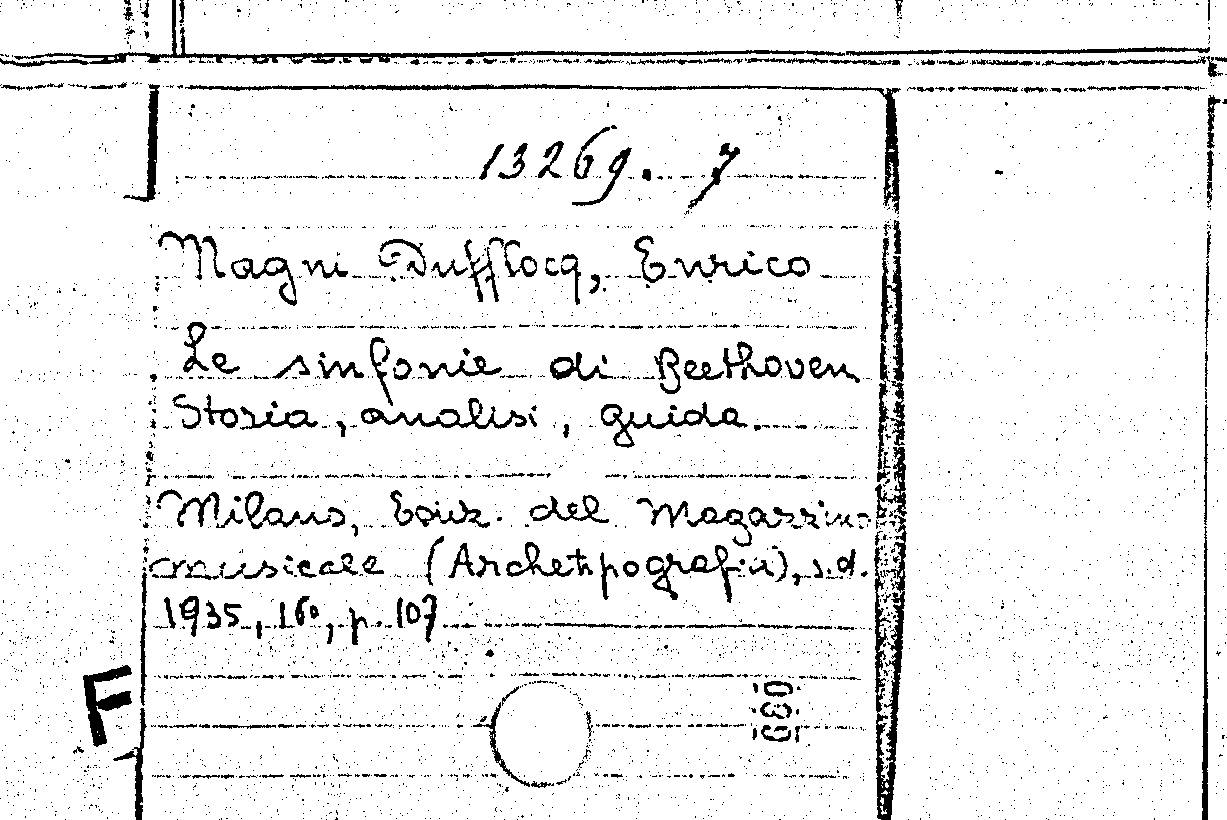 13269. 7
Magni Dufflocq, Enrico
Le sinfonie di Beethoven
Storia, analisi, guida.
Milano, Ediz. del Magazzino
musicale (Archetipografia), s.d.
1935, 16º, p. 107
F